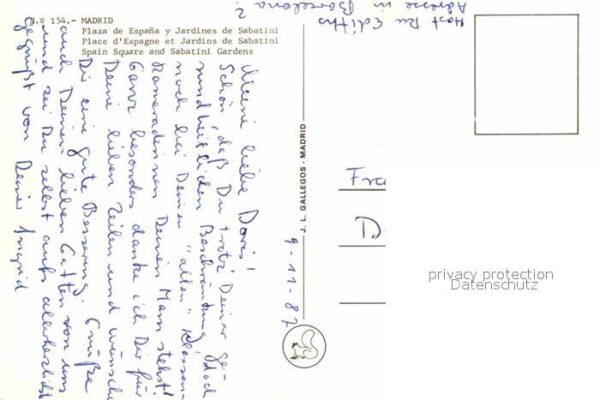 N.º 154.- MADRID
Plaza de España y Jardines de Sabatini
Place d'Espagne et Jardins de Sabatini
Spain Square and Sabatini Gardens
Meine liebe Doris!
Schön, daß Du trotz Deiner ge-
sundheitlichen Beschränkung doch
noch bei Deinen "alten" Klassen-
kameradinnen Deinen Mann stehst!
Ganz besonders danke ich Dir für
Deine lieben Zeilen und wünsche
Dir eine gute Besserung. Grüße
auch Deinen lieben Gatten von uns
und sei Du selbst aufs allerherzlichst
gegrüßt von Deiner Ingrid
Hast Du Ediths
Adresse in Barcelona?
J. L. GALLEGOS - MADRID
9-11-87
Fra
D
privacy protection
Datenschutz